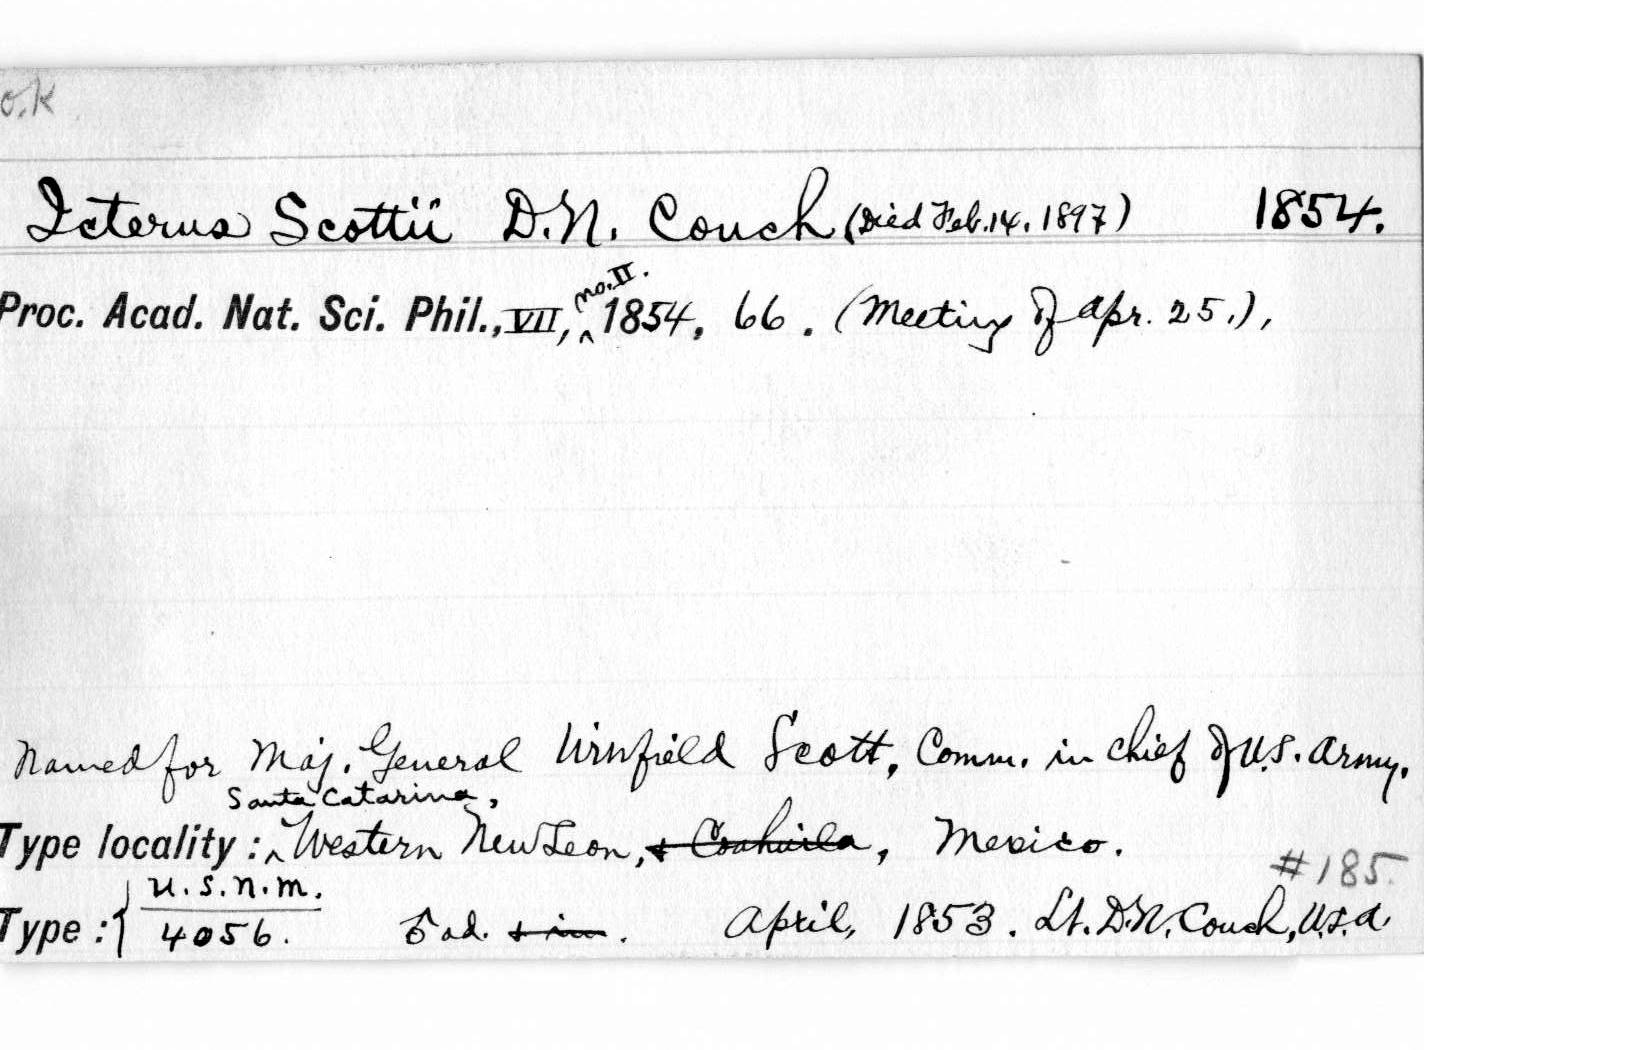 o.k
Icterus Scottii D.N. Couch (Died Feb. 14, 1897) 1854.
no. II.
Proc. Acad. Nat. Sci. Phil., VII, ^ 1854, 66. (Meeting of Apr. 25.),
Named for Maj. General Winfield Scott, Comm. in chief of U.S. Army.
Santa Catarina,
Type locality: ^ Western New Leon, & Coahuila, Mexico.
#185.
U.S.N.M.
Type: { 4056. ♂ ad. & im. April, 1853. Lt. D.N. Couch, U.S.A.